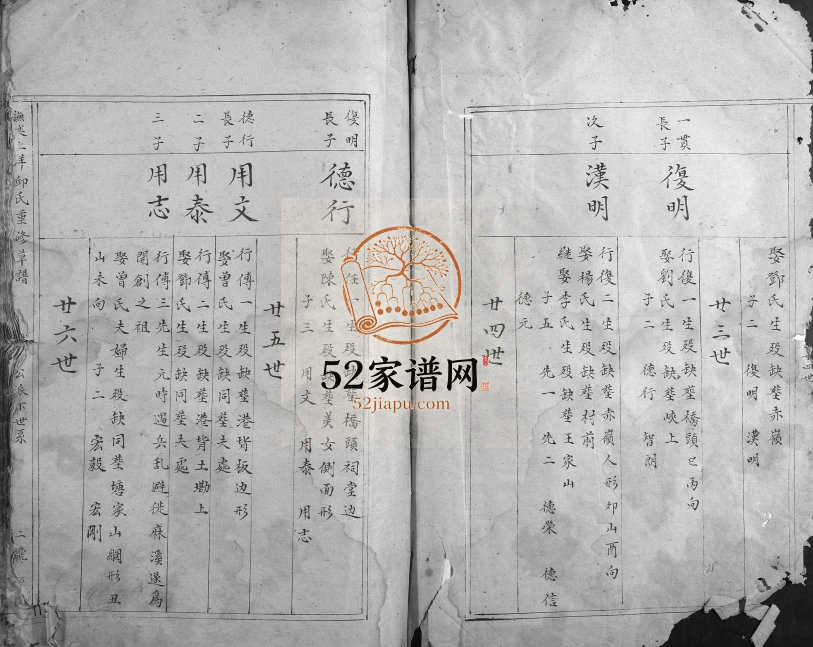 娶鄧氏生殁缺塟赤嶺
子二 復明 漢明
廿三世
一貫
長子
復明
行復一生殁缺塟橋頭巳丙向
娶劉氏生殁缺塟峽上
子二 德行 智朗
次子
漢明
行復二生殁缺塟赤嶺人形卯山酉向
娶楊氏生殁缺塟村前
継娶李氏生殁缺塟王家山
子五 先一 先二 德榮 德信
德元
廿四世
復明
長子
德行
行任一生殁缺塟橋頭祠堂边
娶陳氏生殁缺塟美女側面形
子三 用文 用泰 用志
廿五世
德行
長子
用文
行傳一生殁缺塟港背板边形
娶曽氏生殁缺同塟夫處
二子
用泰
行傳二生殁缺塟港背土墈上
娶鄧氏生殁缺同塟夫處
三子
用志
行傳三先生元時遇兵乱避徙麻溪遂為
開創之祖
娶曽氏夫婦生殁缺同塟塘家山網形丑
山未向 子二 宏毅 宏剛
廿六世
邱氏重修草譜
公派下世系
52家谱网
52jiapu.com